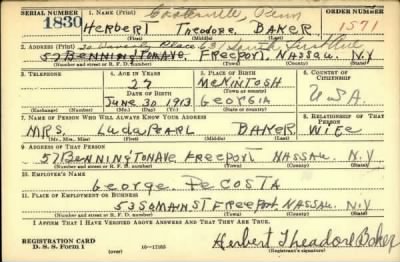 SERIAL NUMBER 1. NAME (Print) ORDER NUMBER
1830 HERBERT Theodore BAKER 1571
(First) (Middle) (Last)
2. ADDRESS (Print)
57 BENNINGTON AVE, FREEPORT, NASSAU, N.Y
(Number and street or R. F. D. number) (Town) (County) (State)
3. TELEPHONE 4. AGE IN YEARS 5. PLACE OF BIRTH 6. COUNTRY OF CITIZENSHIP
27 McKINTOSH
DATE OF BIRTH (Town or county)
JUNE 30 1913 GEORGIA USA
(Exchange) (Number) (Mo.) (Day) (Yr.) (State or country)
7. NAME OF PERSON WHO WILL ALWAYS KNOW YOUR ADDRESS 8. RELATIONSHIP OF THAT PERSON
MRS. LudaPEARL BAKER WIFE
(Mr., Mrs., Miss) (First) (Middle) (Last)
9. ADDRESS OF THAT PERSON
57 BENNINGTON AVE FREEPORT NASSAU. N.Y
(Number and street or R. F. D. number) (Town) (County) (State)
10. EMPLOYER'S NAME
GEORGE. DeCOSTA
11. PLACE OF EMPLOYMENT OR BUSINESS
53 SO MAIN ST FREEPORT NASSAU. N.Y
(Number and street or R. F. D. number) (Town) (County) (State)
I AFFIRM THAT I HAVE VERIFIED ABOVE ANSWERS AND THAT THEY ARE TRUE.
REGISTRATION CARD
D. S. S. Form 1 (over) 16—17105 Herbert Theodore Baker
(Registrant's signature)